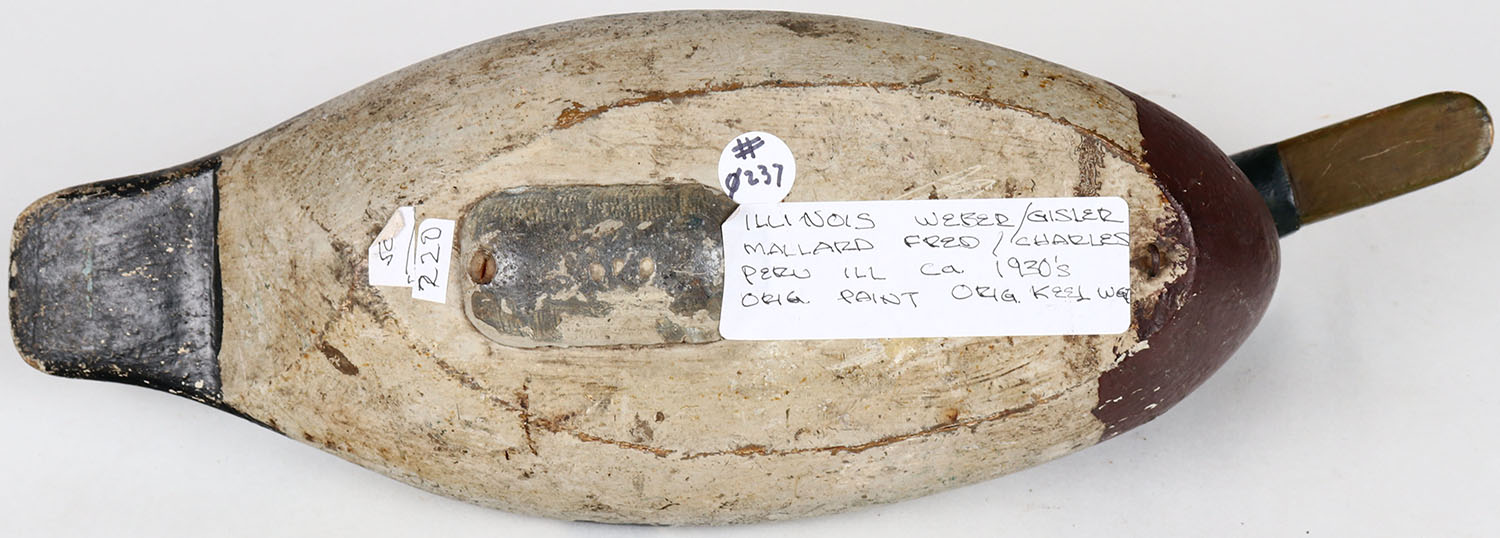 #
0237
ILLINOIS WEBER/GISLER
MALLARD FRED/CHARLES
PERU ILL ca. 1930's
ORIG. PAINT ORIG. KEEL WGT
220